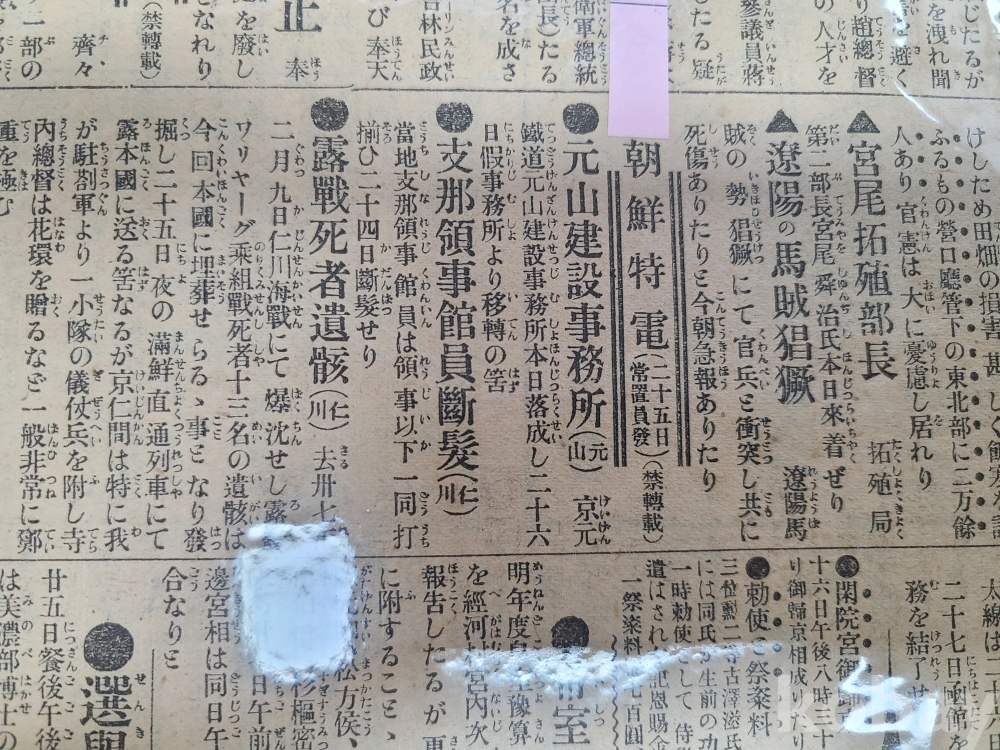 じたるが
を洩れ聞
なき
に避く
り趙總督
の人才を
參議員蔣
したる疑
衛軍總統
長)たる
名を成さ
吉林民政
び奉天
正
奉
を廢し
なれり
(禁轉載)
齊々
一部の
けしため田畑の損害甚しく饑寒
ふるもの營口廳管下の東北部に二万餘
人あり官憲は大に憂慮し居れり
▲宮尾拓殖部長
拓殖局
第二部長宮尾舜治氏本日來着せり
▲遼陽の馬賊猖獗
遼陽馬
賊の勢猖獗にて官兵と衝突し共に
死傷ありたりと今朝急報ありたり
朝鮮特電(二十五日常置員發)(禁轉載)
●元山建設事務所(元山)
京元
鐵道元山建設事務所本日落成し二十六
日假事務所より移轉の筈
●支那領事館員斷髮(仁川)
當地支那領事館員は領事以下一同打
揃ひ二十四日斷髮せり
●露戰死者遺骸(仁川)
去卅七
二月九日仁川海戰にて爆沈せし露
ワリヤーグ乘組戰死者十三名の遺骸は
今回本國に埋葬せらるゝ事となり發
掘し二十五日夜の滿鮮直通列車にて
露本國に送る筈なるが京仁間は特に我
が駐剳軍より一小隊の儀仗兵を附し寺
内總督は花環を贈るなど一般非常に鄭
重を極む
二十七日函館を
務を結了せ
●閑院宮御歸
十六日午後八時三十
り御歸京相成りたり
●勅使と祭粢料
三位勳二等古澤滋氏
には同氏が生前の功
一時勅使として侍
遺はされ
一祭粢料
室
明年度皇室豫算
を經河村宮内次
報告したるが更
に附すること、
松方侯、
杉樞密
日午前
邊宮相は同日午
合なりと
●選
廿五日餐後午後
は美濃部博士の